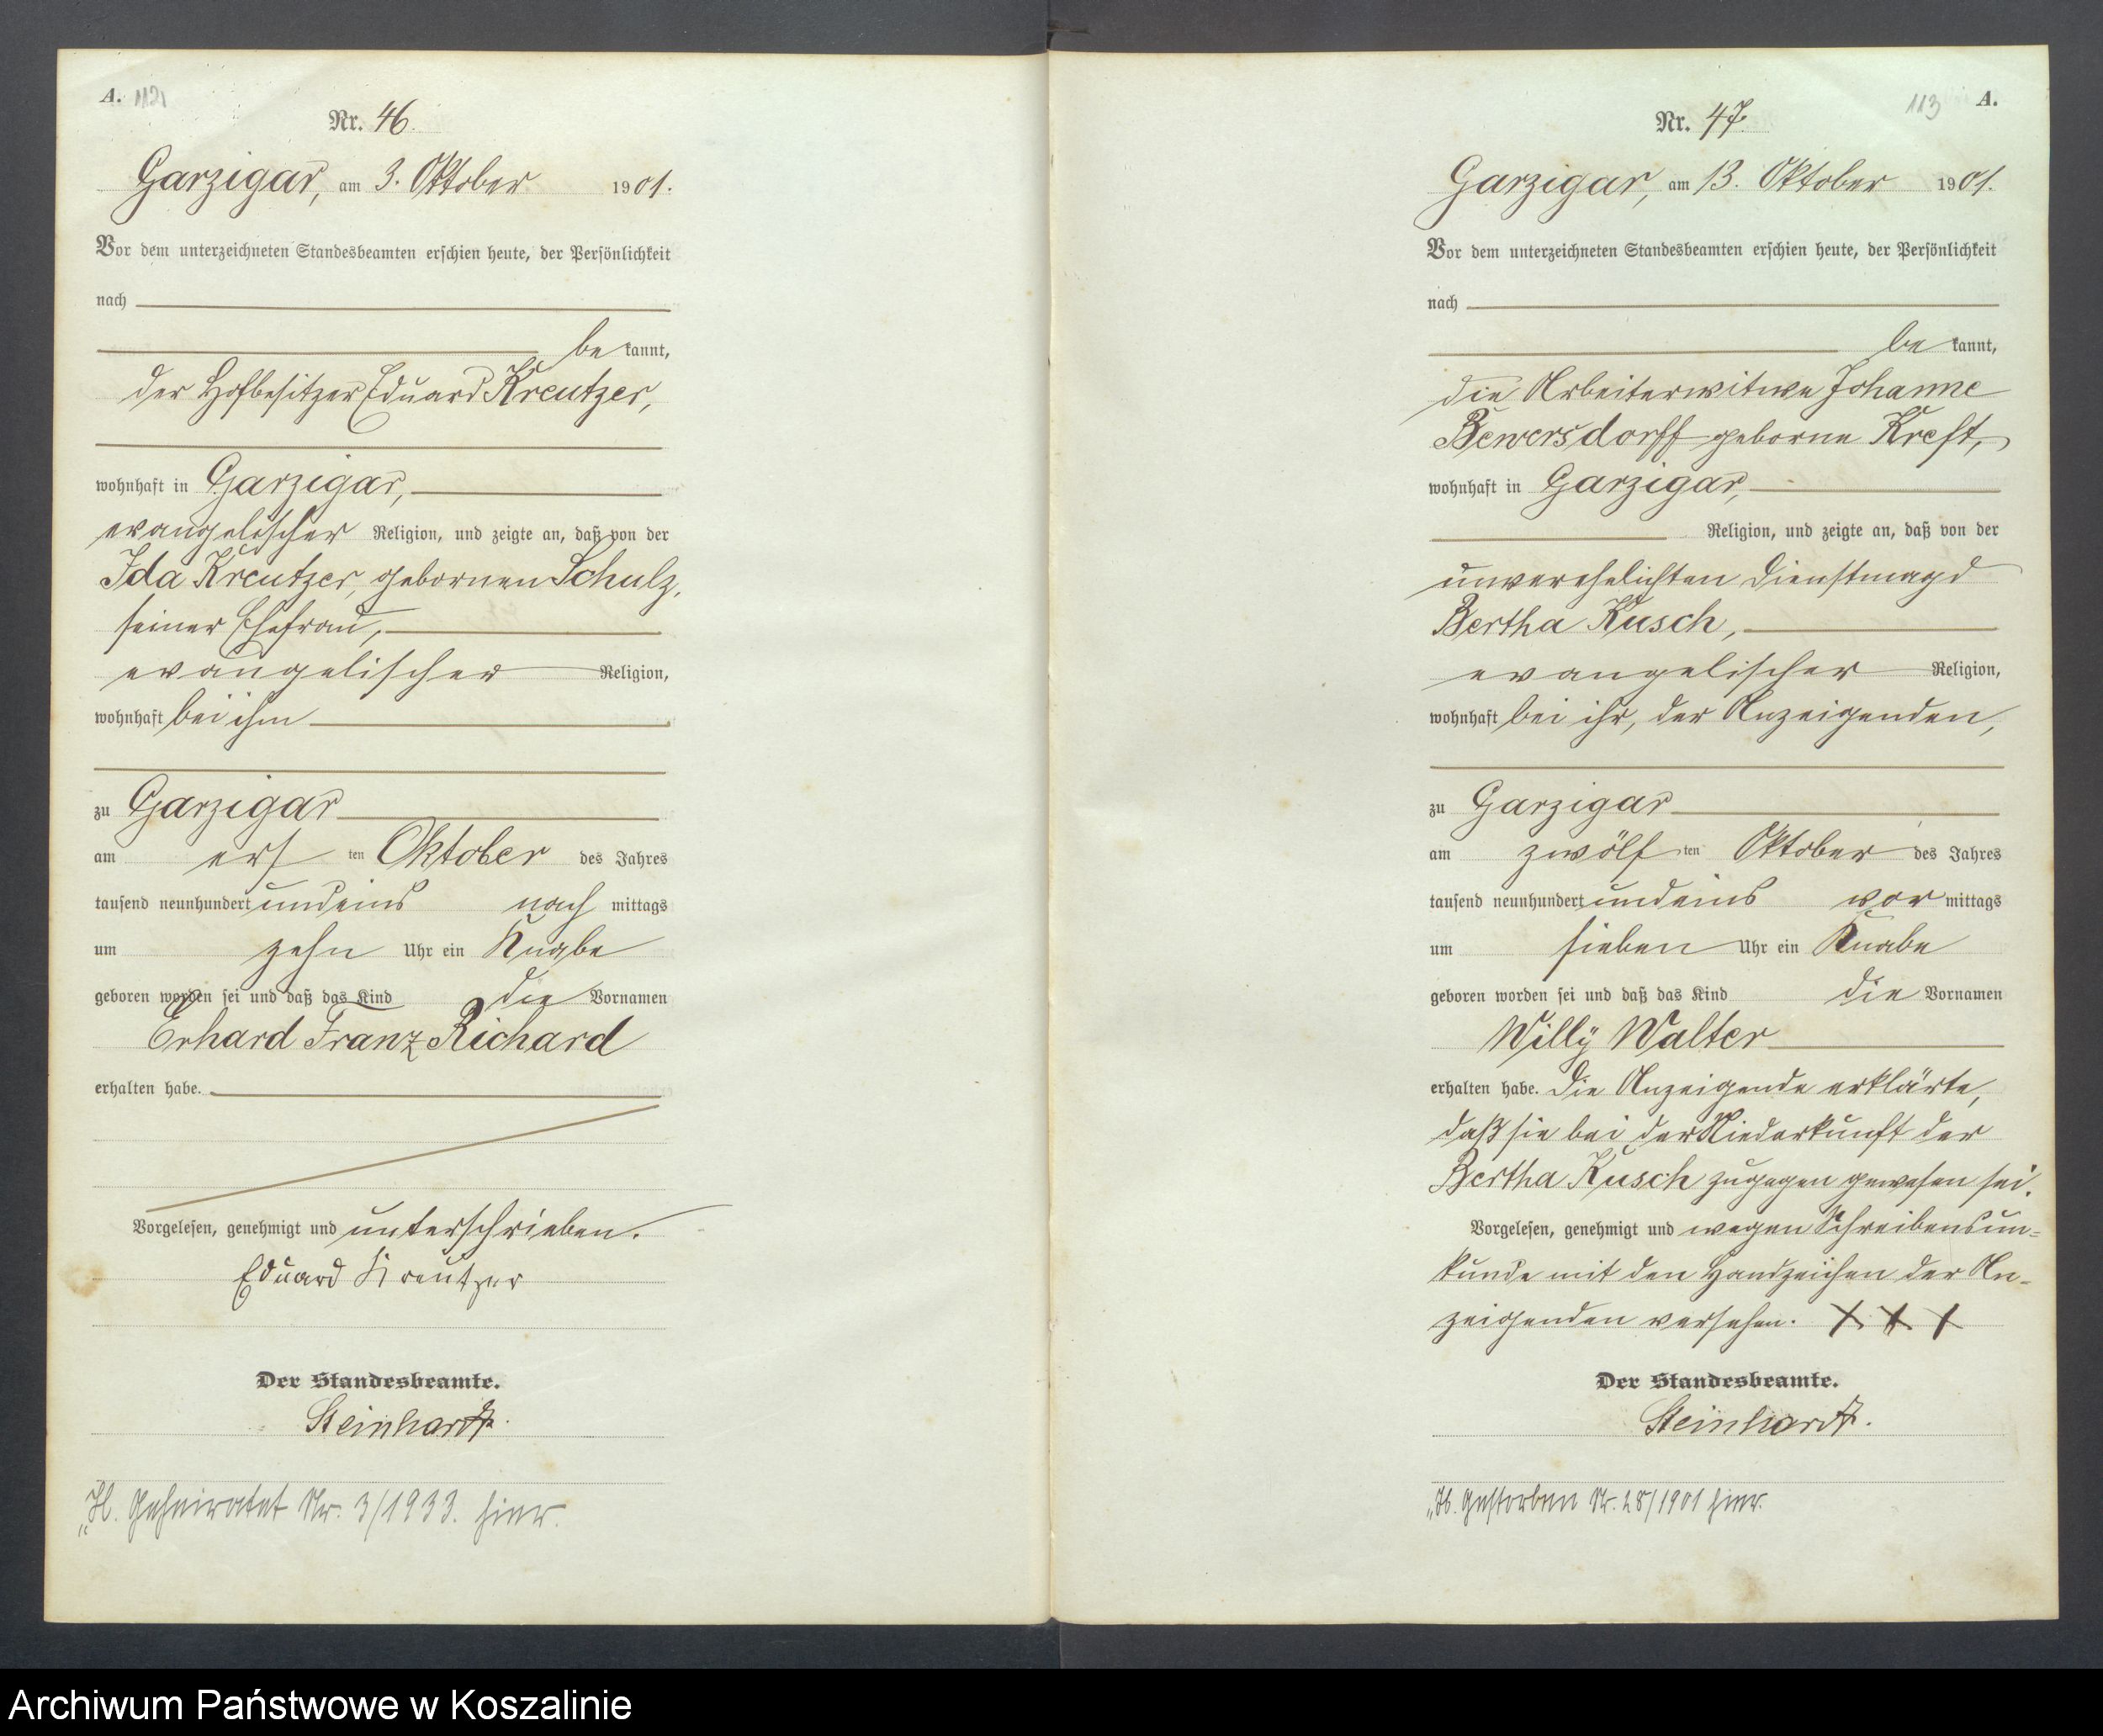 A. 112
Nr. 46.
Garzigar, am 3. Oktober 1901.
Vor dem unterzeichneten Standesbeamten erschien heute, der Persönlichkeit
nach
be kannt,
der Hofbesitzer Eduard Kreutzer,
wohnhaft in Garzigar,
evangelischer Religion, und zeigte an, daß von der
Ida Kreutzer, gebornen Schulz,
seiner Ehefrau,
evangelischer Religion,
wohnhaft bei ihm
zu Garzigar
am erst ten Oktober des Jahres
tausend neunhundert undeins nach mittags
um zehn Uhr ein Knabe
geboren worden sei und daß das Kind die Vornamen
Erhard Franz Richard
erhalten habe.
Vorgelesen, genehmigt und unterschrieben.
Eduard Kreutzer
Der Standesbeamte.
Steinhardt.
„H. Geheiratet Nr. 3/1933. hier.
113 A.
Nr. 47.
Garzigar, am 13. Oktober 1901.
Vor dem unterzeichneten Standesbeamten erschien heute, der Persönlichkeit
nach
be kannt,
die Arbeiterwitwe Johanne
Bewersdorff geborne Kreft,
wohnhaft in Garzigar,
Religion, und zeigte an, daß von der
unverehelichten Dienstmagd
Bertha Kusch,
evangelischer Religion,
wohnhaft bei ihr, der Anzeigenden,
zu Garzigar
am zwölf ten Oktober des Jahres
tausend neunhundert undeins vor mittags
um sieben Uhr ein Knabe
geboren worden sei und daß das Kind die Vornamen
Willy Walter
erhalten habe. Die Anzeigende erklärte,
daß sie bei der Niederkunft der
Bertha Kusch zugegen gewesen sei.
Vorgelesen, genehmigt und wegen Schreibensun-
kunde mit den Handzeichen der An-
zeigenden versehen. X X X
Der Standesbeamte.
Steinhardt.
„H. Gestorben Nr. 28/1901 hier.
Archiwum Państwowe w Koszalinie